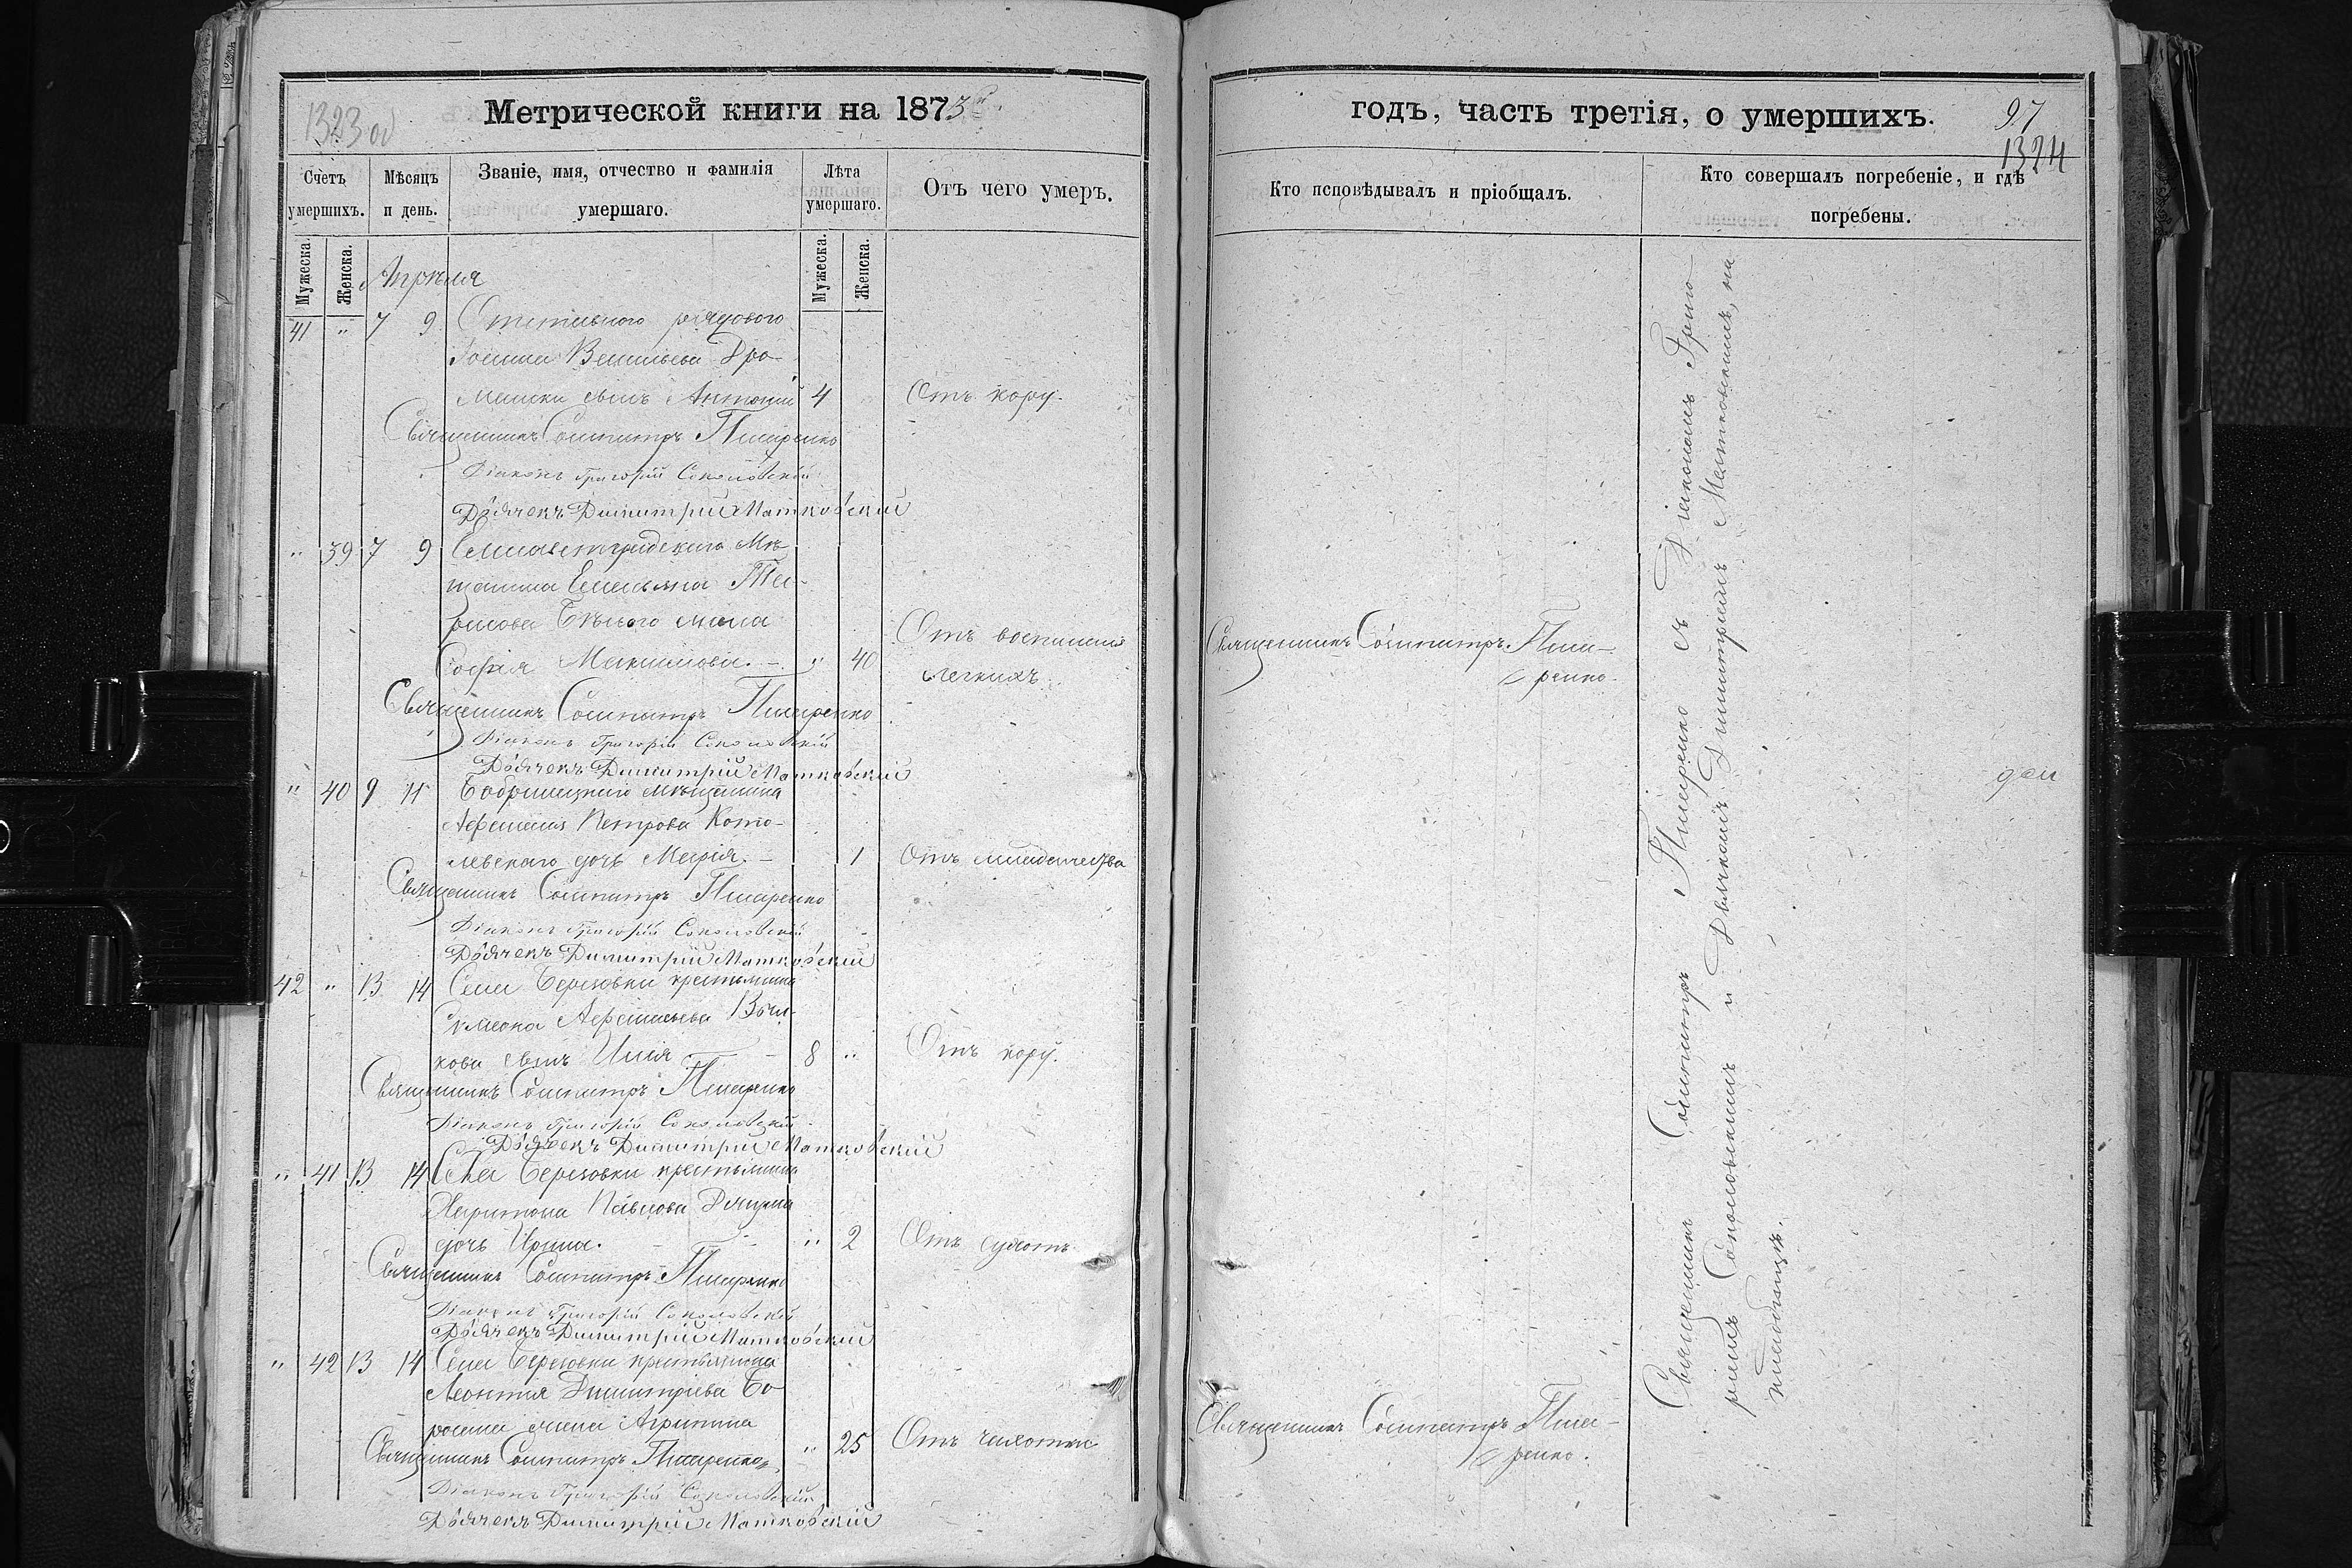 1323 об
Метрической книги на 1873й
годъ, часть третія, о умершихъ.
97
1324
Счетъ умершихъ.
Мѣсяцъ и день.
Званіе, имя, отчество и фамилія умершаго.
Лѣта умершаго.
Отъ чего умеръ.
Кто исповѣдывалъ и пріобщалъ.
Кто совершалъ погребеніе, и гдѣ погребены.
Мужеска.
Женска.
Мужеска.
Женска.
Апрѣля
41 " 7 9 Отставного рядового
Васильева Дро-
машки сынъ Антоній 4 Отъ кору.
Священникъ Сосипатръ Писаренко
Діаконъ Григорій Соколовскій
Дьячекъ Димитрій Матковскій
" 39 7 9 Елисаветградскаго Мѣ-
щанина Емельяна
Бѣлого жена
Софія Максимова. " 40 Отъ воспаленія
легкихъ
Священникъ Сосипатръ Писа-
ренко.
Священникъ Сосипатръ Писаренко
Діаконъ Григорій Соколовскій
Дьячекъ Димитрій Матковскій
" 40 9 11 Бобринецкаго мѣщанина
Афанасія Петрова Кото-
левскаго дочь Марія. 1 Отъ младенчества
Священникъ Сосипатръ Писаренко
Діаконъ Григорій Соколовскій
Дьячекъ Димитрій Матковскій
42 " 13 14 Села Березовки крестьянина
Симеона Афанасьева Бычи-
кова сынъ Илія 8 " Отъ кору.
Священникъ Сосипатръ Писаренко
Діаконъ Григорій Соколовскій
Дьячекъ Димитрій Матковскій
" 41 13 14 Села Березовки крестьянина
Харитона Павлова
дочь Ирина. " 2 Отъ сухотъ
Священникъ Сосипатръ Писаренко
Діаконъ Григорій Соколовскій
Дьячекъ Димитрій Матковскій
" 42 13 14 Села Березовки крестьянина
Леонтія Димитріева Бо-
жена Агрипина " 25 Отъ чахотки
Священникъ Сосипатръ Писа-
ренко.
Священникъ Сосипатръ Писаренко
Діаконъ Григорій Соколовскій
Дьячекъ Димитрій Матковскій
Священникъ Сосипатръ Писаренко съ Діакономъ Григо-
ріемъ Соколовскимъ и Дьячкомъ Димитріемъ Матковскимъ, на
кладбищѣ.